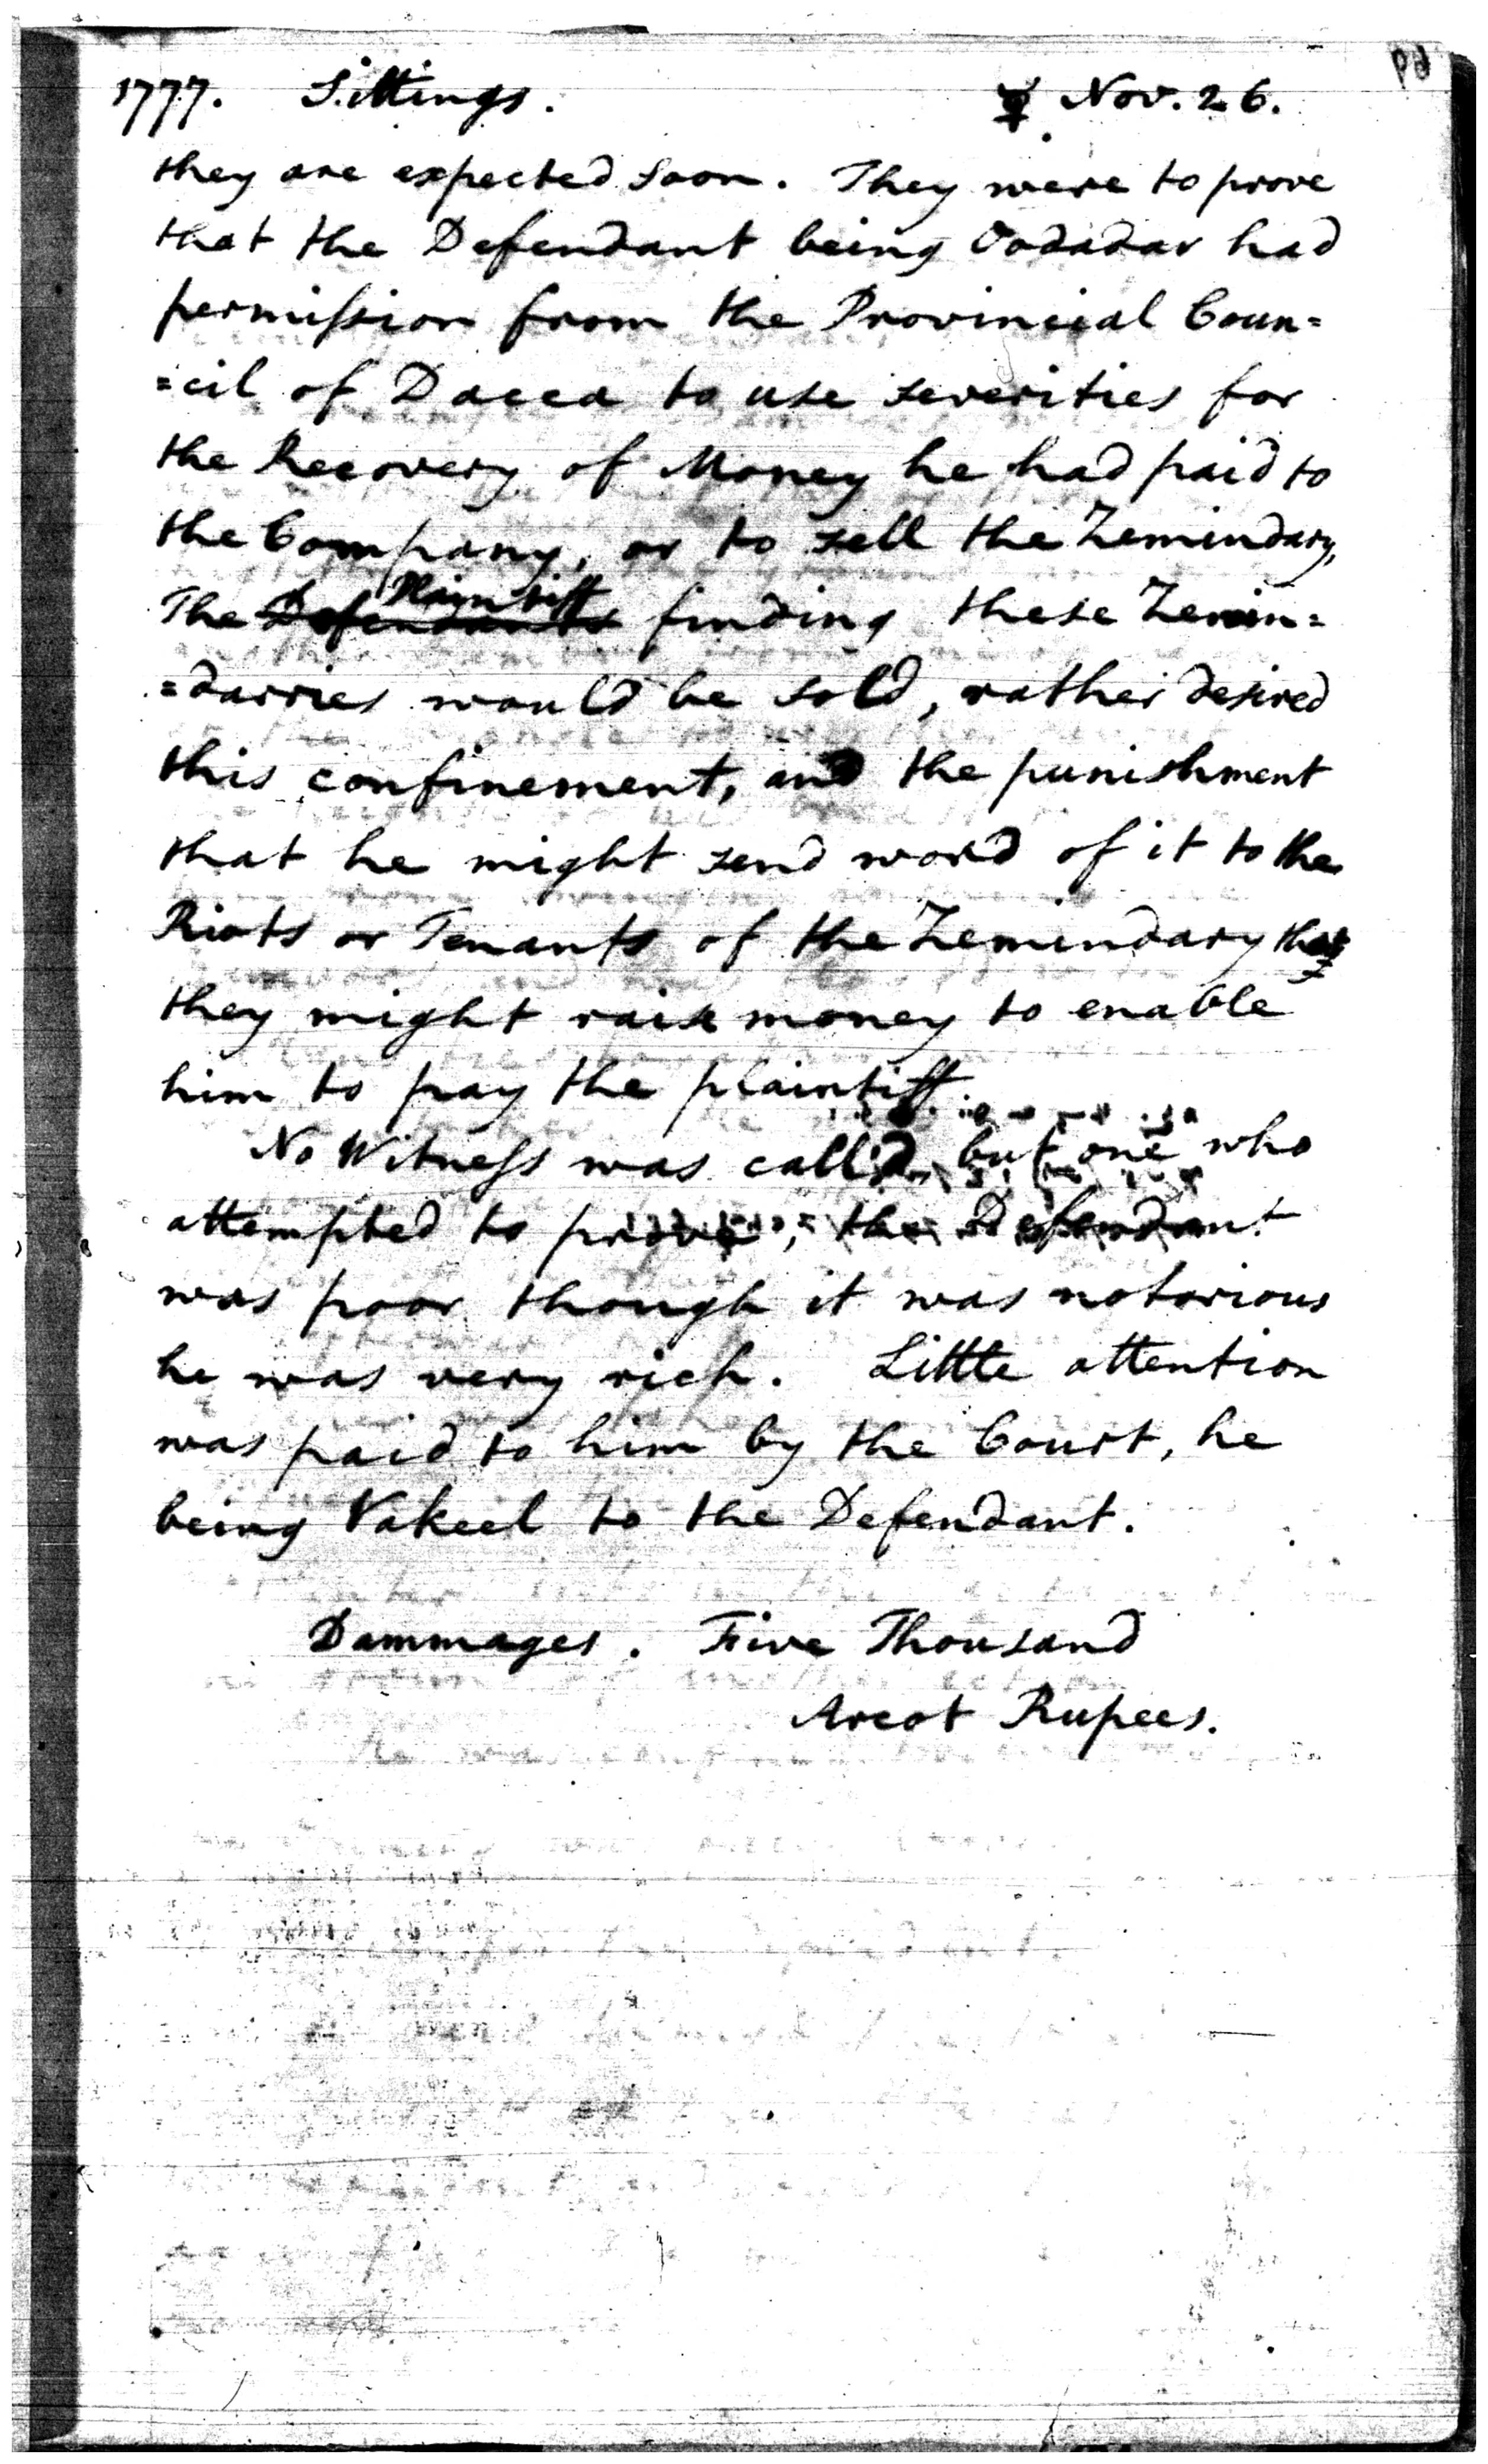 1777. Sittings. ☿ Nov. 26.
they are expected soon. They were to prove
that the Defendant being Oodadar had
permission from the Provincial Coun=
=cil of Dacca to use severities for
the Recovery of Money he had paid to
the Company, or to sell the Zemindary,
The Plaintiff finding these Zemin=
=darries would be sold, rather desired
this confinement, and the punishment
that he might send word of it to the
Riots or Tenants of the Zemindary that
they might raise money to enable
him to pay the plaintiff.
No Witness was call'd but one who
attempted to prove, the Defendant
was poor though it was notorious
he was very rich. Little attention
was paid to him by the Court, he
being Vakeel to the Defendant.
Dammages. Five Thousand
Arcot Rupees.